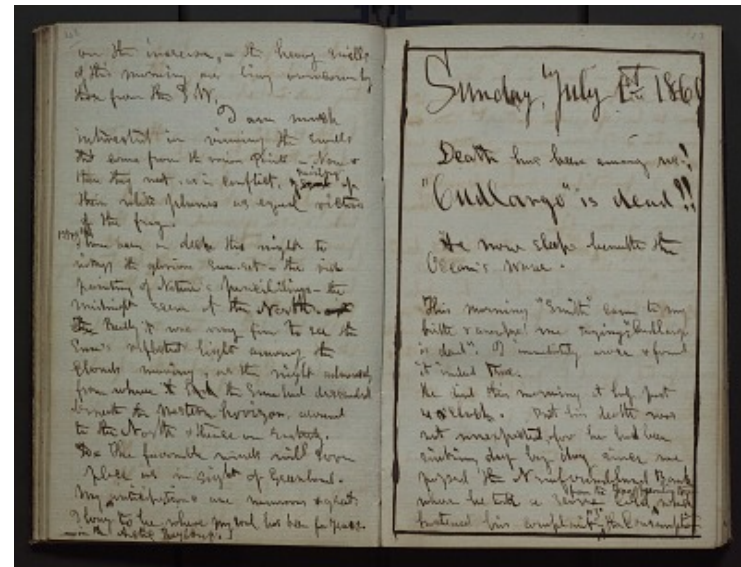 on the increase, – the heavy swells
of this morning are
than from the S W.
I am much
interested in viewing the swells
that come from the various Points – Now &
then they meet, as in conflict,
their white plumes as equal victors
of the fray.
I have been on deck this night to
witness the glorious Sun-set – the rich
painting of Nature's pencillings – the
midnight scene of the North.
Really it was very fine to see the
Sun's reflected light among the
Clouds moving, as the night advanced,
from where the Sun had descended
beneath the Western horizon, around
to the North & thence on Easterly.
The favorable winds will soon
place us in sight of Greenland.
My anticipations are numerous & great.
I long to be where my soul has been for years.
Sunday, July 1st 1860
Death has been among us!
"Cudlargo" is dead!!
He now sleeps beneath the
Ocean's wave.
This morning "Smith" came to my
berth & me saying, "Cudlargo
is dead". I immediately arose & found
it indeed true.
He died this morning at half past
o'clock. But his death was
not unexpected, for he had been
sinking day by day since we
passed the Newfoundland Bank
where he took a cold, which
hastened his complaint, Consumption